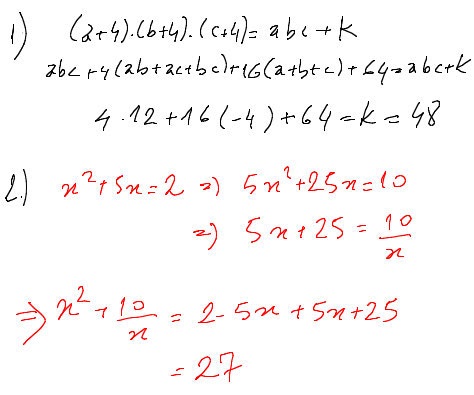 1) (a+4).(b+4).(c+4)=abc+k
abc+4(ab+ac+bc)+16(a+b+c)+64=abc+k
4.12+16(-4)+64=k=48
2.) x²+5x=2 => 5x²+25x=10
=> 5x+25=10/x
=> x²+10/x = 2-5x+5x+25
=27